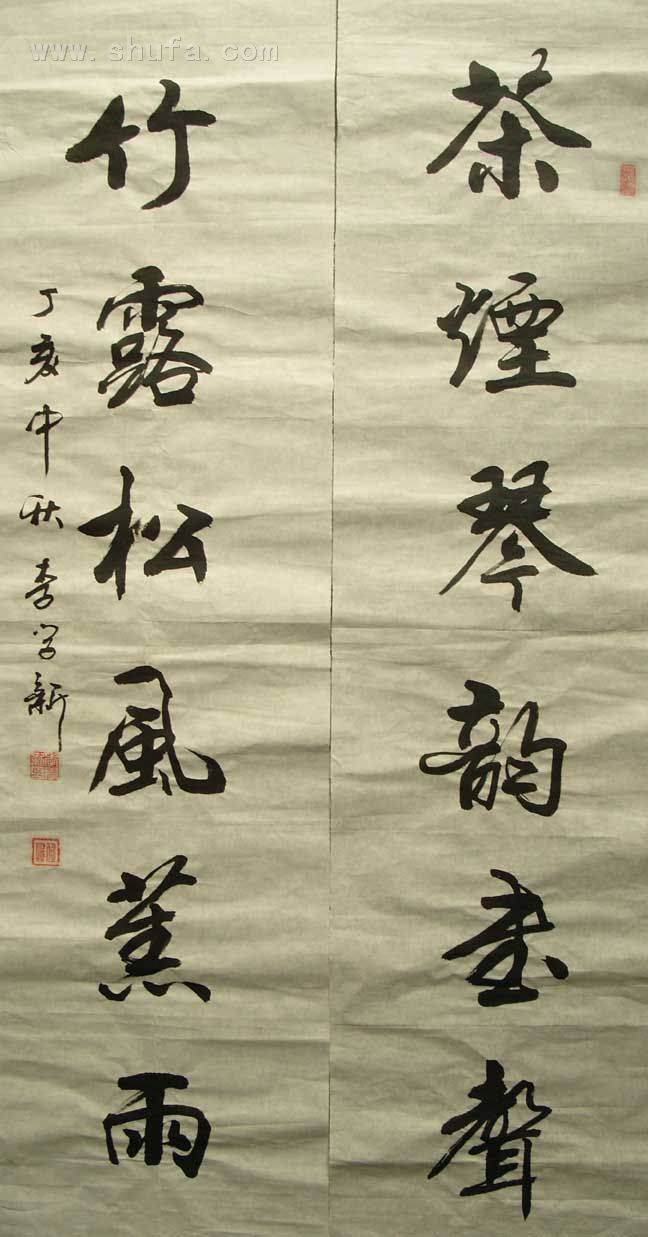 www.shufa.com
茶煙琴韵書聲
竹露松風蕉雨
丁亥中秋李学新